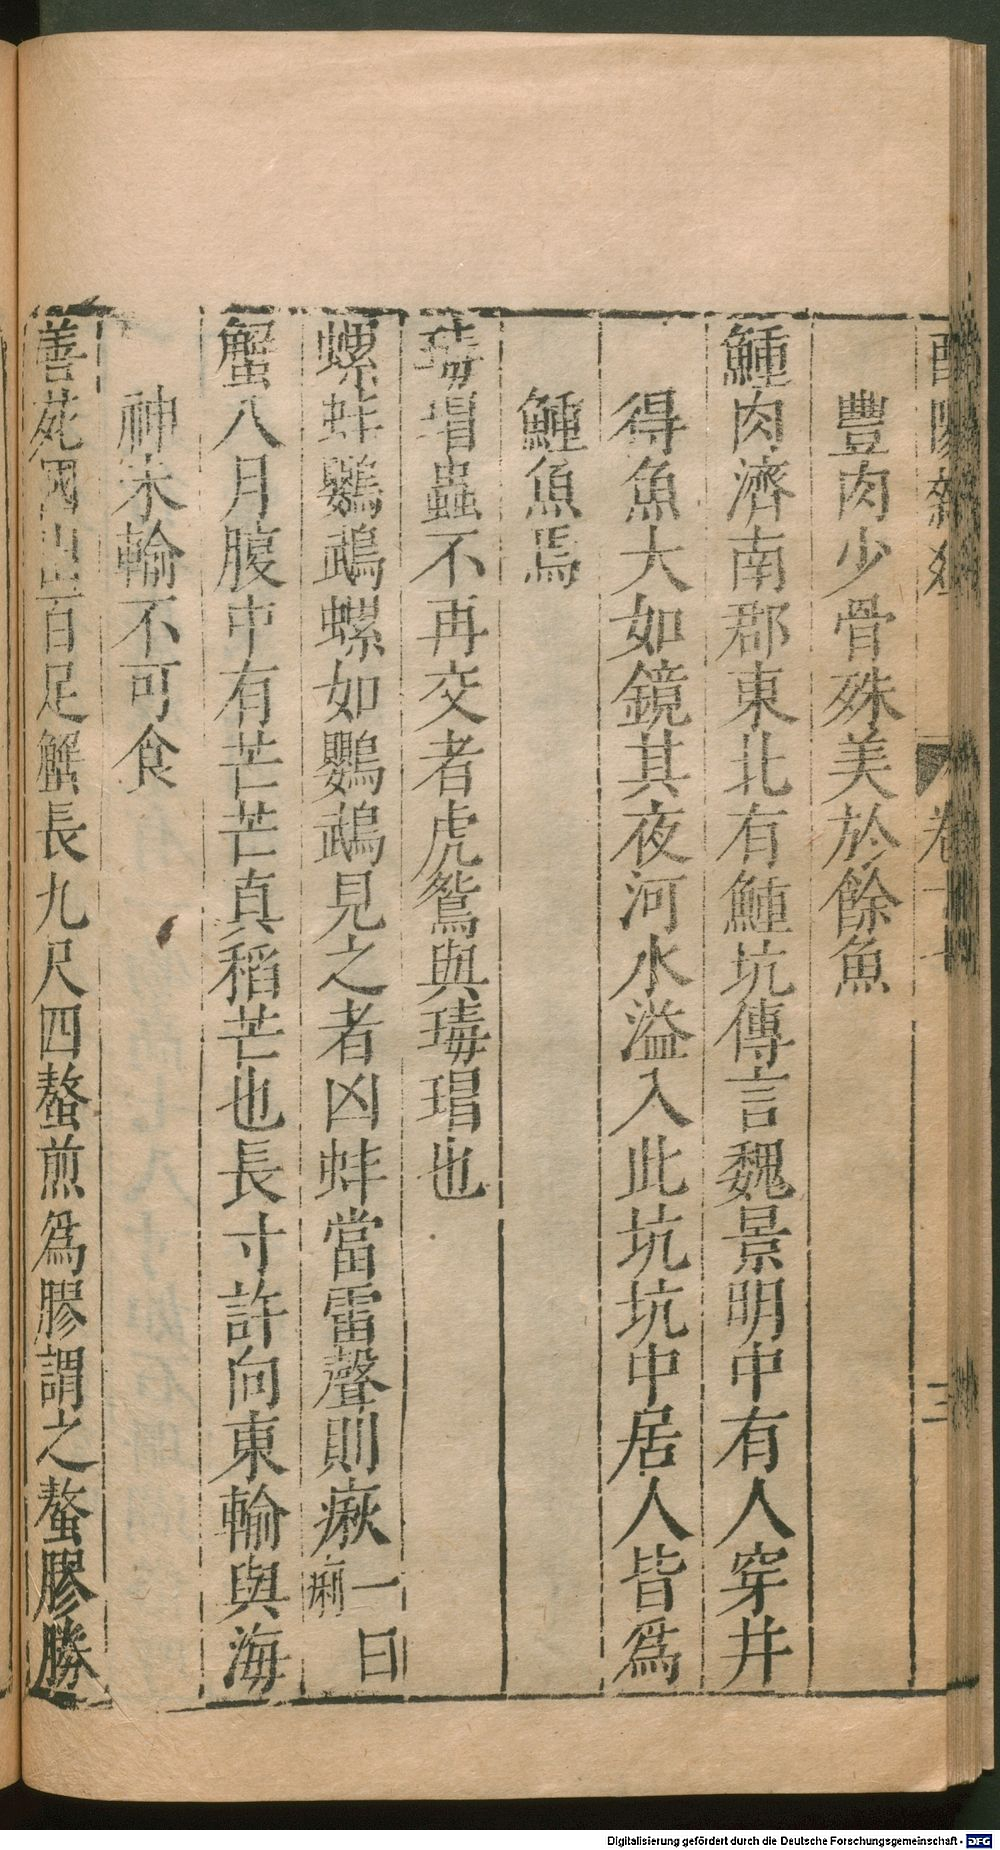 酉陽雜俎 卷十七 三
豐肉少骨殊美於餘魚
鯉肉濟南郡東北有鯉坑傳言魏景明中有人穿井
得魚大如鏡其夜河水溢入此坑坑中居人皆爲
鯉魚焉
瑇瑁蟲不再交者虎鴛與瑇瑁也
螺蚌鸚鵡螺如鸚鵡見之者凶蚌當雷聲則㾭一曰㾐
蟹八月腹中有芒芒真稻芒也長寸許向東輸與海
神未輸不可食
善苑國出百足蟹長九尺四螯煎爲膠謂之螯膠勝
Digitalisierung gefördert durch die Deutsche Forschungsgemeinschaft - DFG